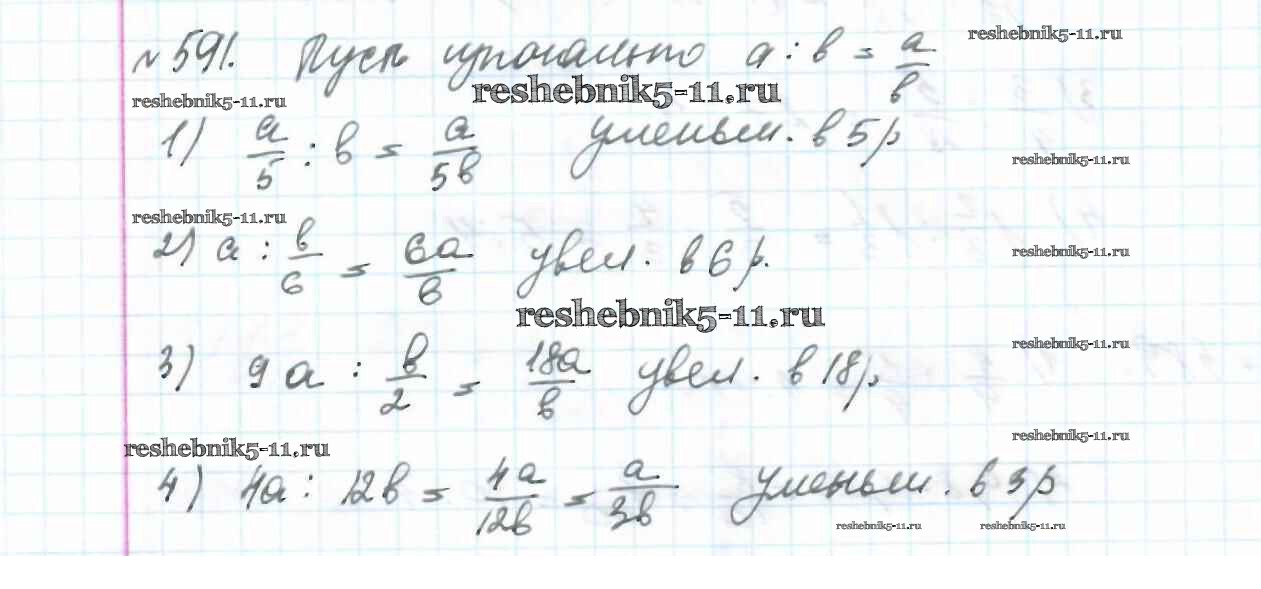 №591. Пусть изначально a : b = a/b
reshebnik5-11.ru
reshebnik5-11.ru
reshebnik5-11.ru
1) a/5 : b = a/5b уменьш. в 5 р
reshebnik5-11.ru
reshebnik5-11.ru
2) a : b/6 = 6a/b увел. в 6 р.
reshebnik5-11.ru
reshebnik5-11.ru
3) 9a : b/2 = 18a/b увел. в 18 р.
reshebnik5-11.ru
reshebnik5-11.ru
reshebnik5-11.ru
4) 4a : 12b = 4a/12b = a/3b уменьш. в 3 р
reshebnik5-11.ru
reshebnik5-11.ru